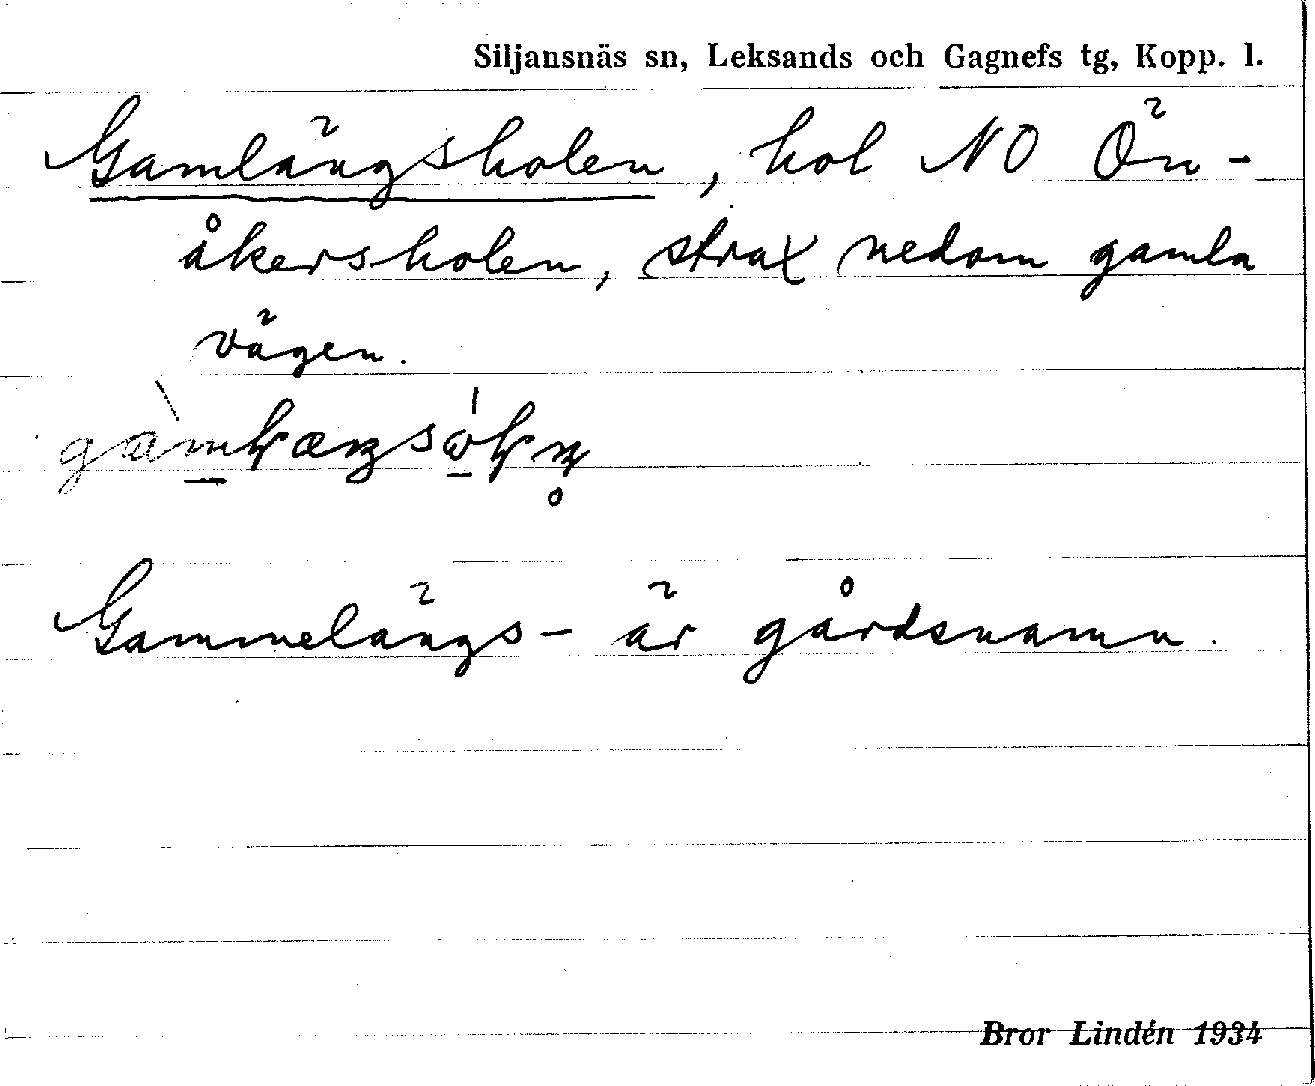 Siljansnäs sn, Leksands och Gagnefs tg, Kopp. l.
Gamlängsholen, hol NO Ön-
åkersholen, strax nedom gamla
vägen.
Gammelängs- är gårdsnamn.
Bror Lindén 1934